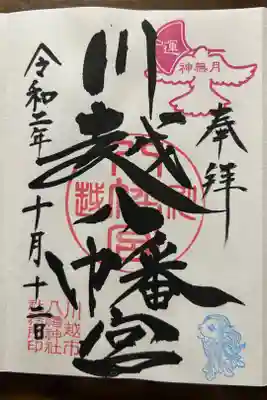 奉拝
神無月
川越八幡宮
令和二年十月十二日
川越市
八幡神社